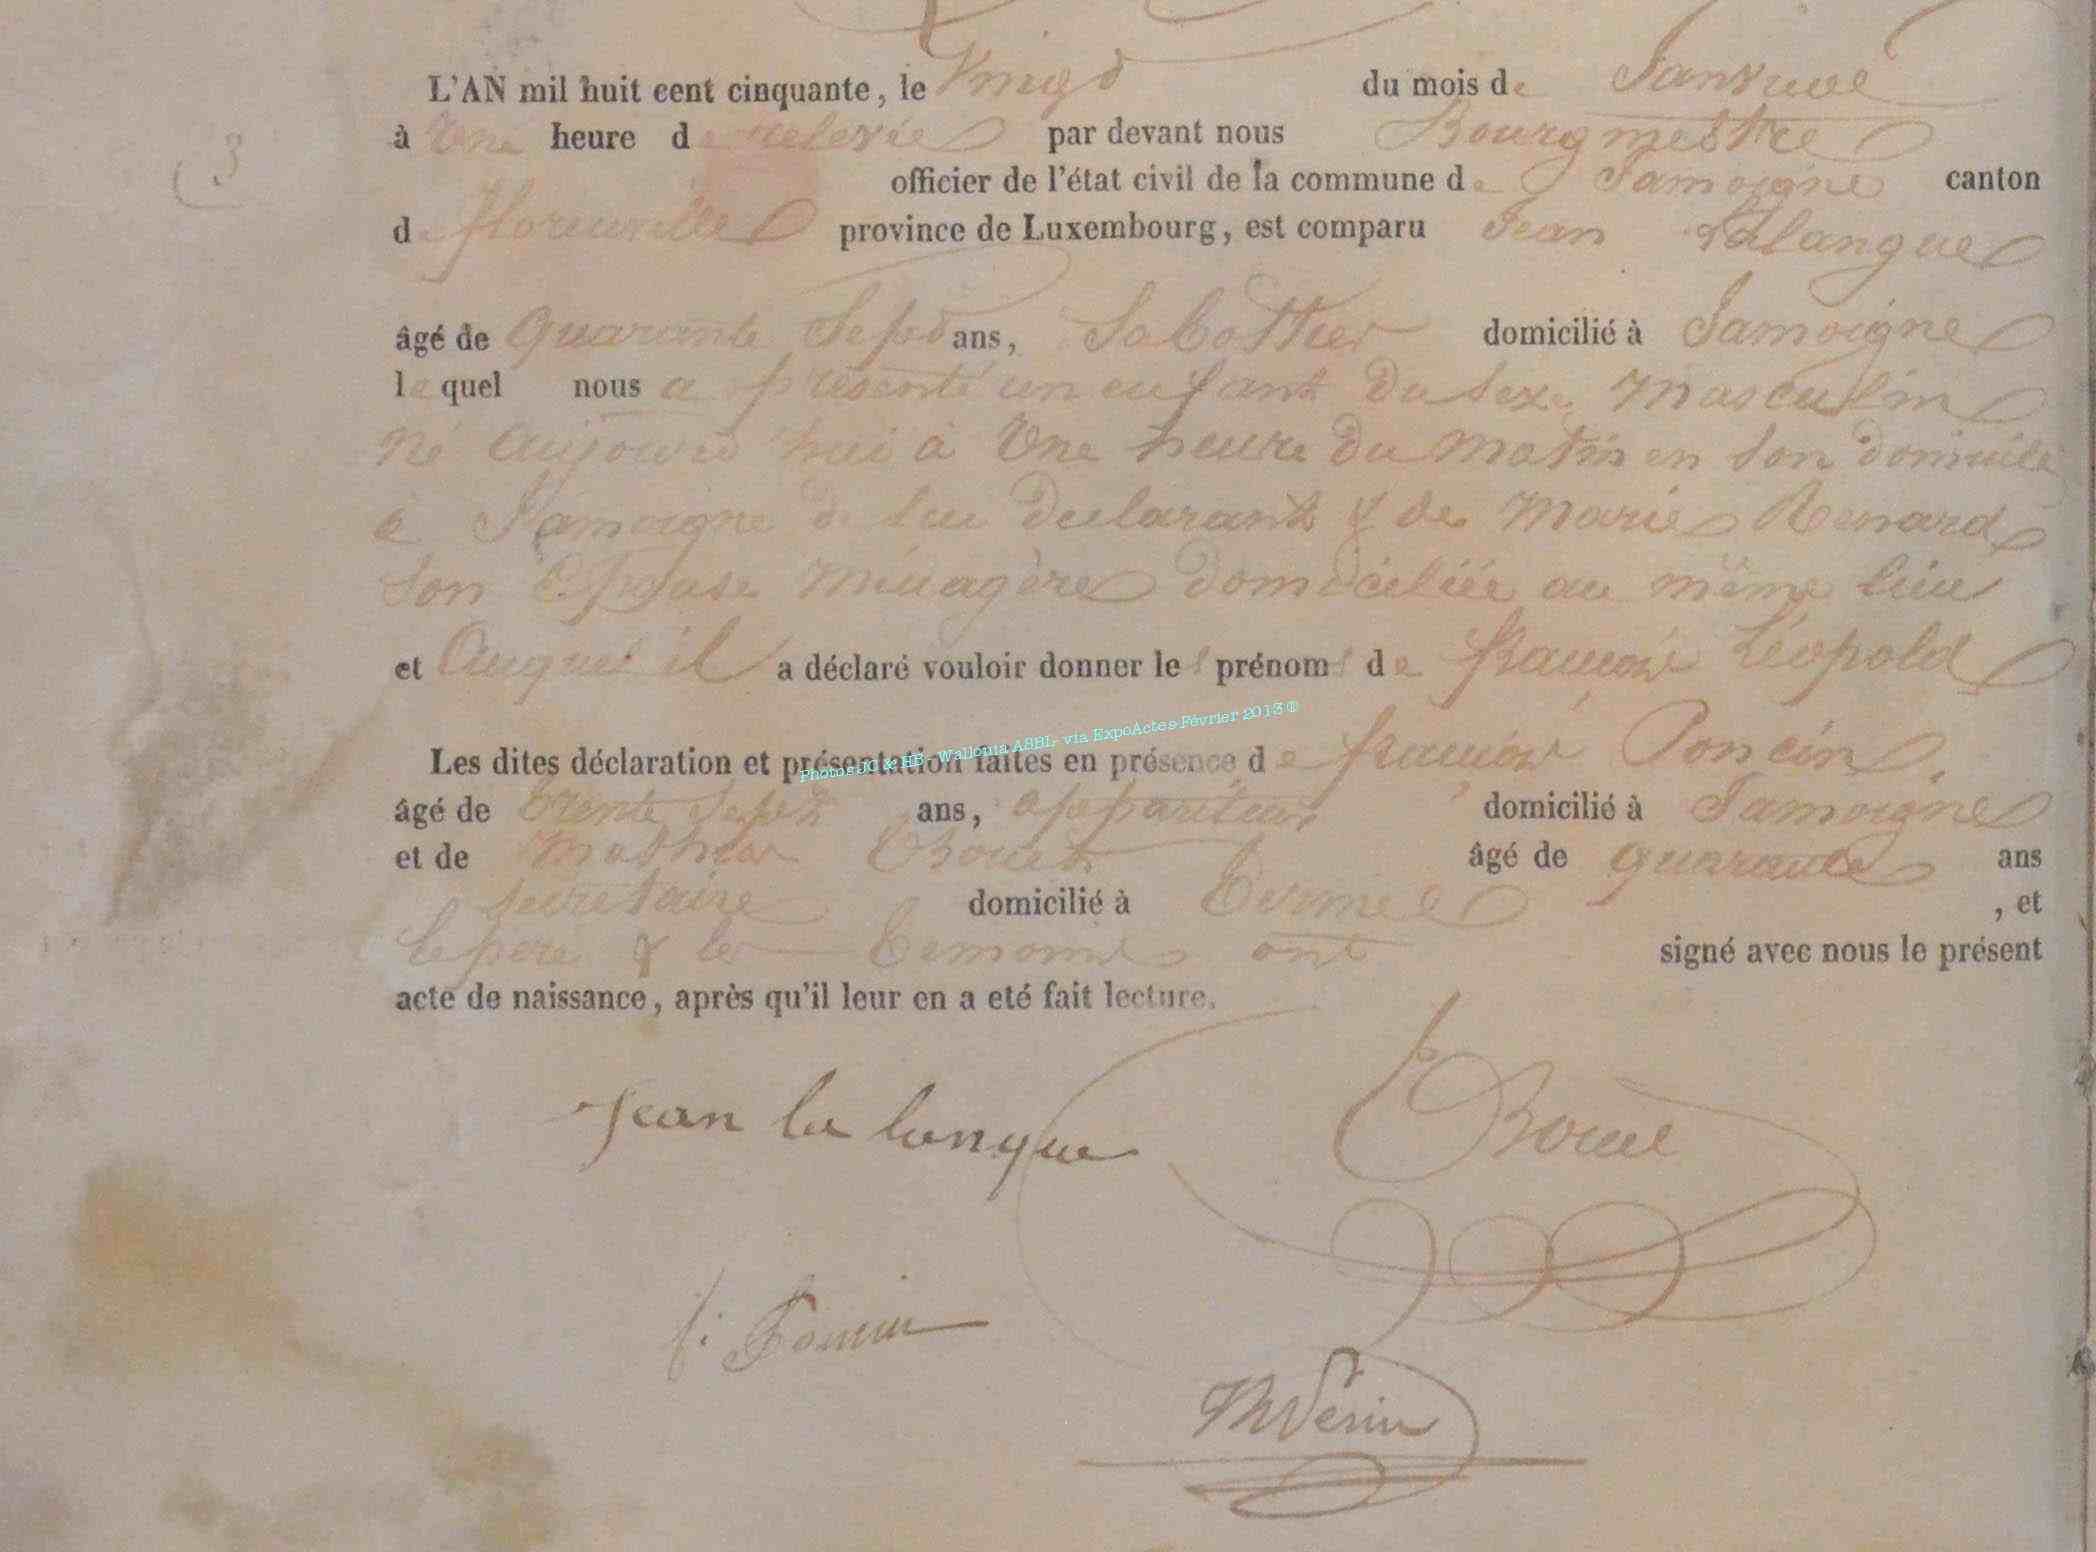 L'AN mil huit cent cinquante, le Vingt du mois de Janvier
3
à Une heure de relevée par devant nous Bourgmestre
officier de l'état civil de la commune de Jamoigne canton
de Florenville province de Luxembourg, est comparu Jean Lalangue
âgé de Quarante Sept ans, Sabottier domicilié à Jamoigne
lequel nous a présenté un enfant du sexe Masculin
né aujourd'hui à Une heure du Matin en son domicile
à Jamoigne de lui declarant & de Marie Renard
son Epouse Ménagère domiciliée au même lieu
et Auquel il a déclaré vouloir donner les prénoms de François Léopold
Les dites déclaration et présentation faites en présence de François Poncin,
Photos JC & HB - Wallonia ASBL - via ExpoActes Février 2013 ®
âgé de trente Sept ans, appariteur domicilié à Jamoigne
et de Mathieu âgé de quarante ans
secretaire domicilié à Termes , et
le père & les temoins ont signé avec nous le présent
acte de naissance, après qu'il leur en a eté fait lecture.
Jean la langue
f: Poncin